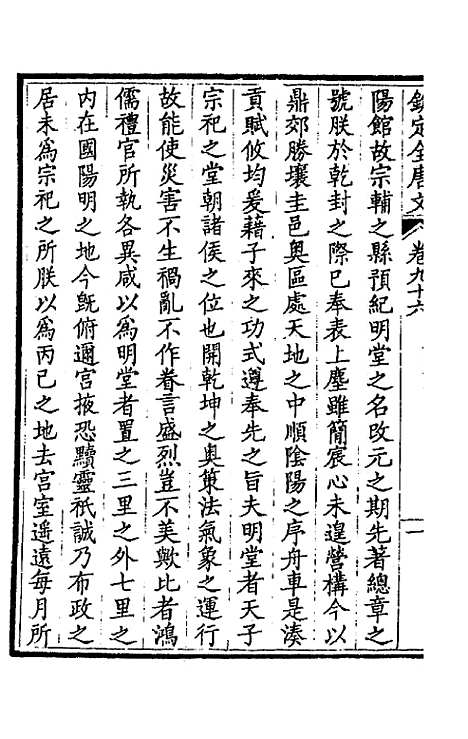 欽定全唐文　卷九十六　一
陽館故宗輔之縣預紀明堂之名改元之期先著總章之
號朕於乾封之際已奉表上塵雖簡宸心未遑營構今以
鼎郊勝壤圭邑奧區處天地之中順陰陽之序舟車是湊
貢賦攸均爰藉子來之功式遵奉先之旨夫明堂者天子
宗祀之堂朝諸侯之位也開乾坤之奧策法氣象之運行
故能使災害不生禍亂不作眷言盛烈豈不美歟比者鴻
儒禮官所執各異咸以為明堂者置之三里之外七里之
內在國陽明之地今旣俯邇宮掖恐黷靈祇誠乃布政之
居未為宗祀之所朕以為丙巳之地去宮室遥遠每月所